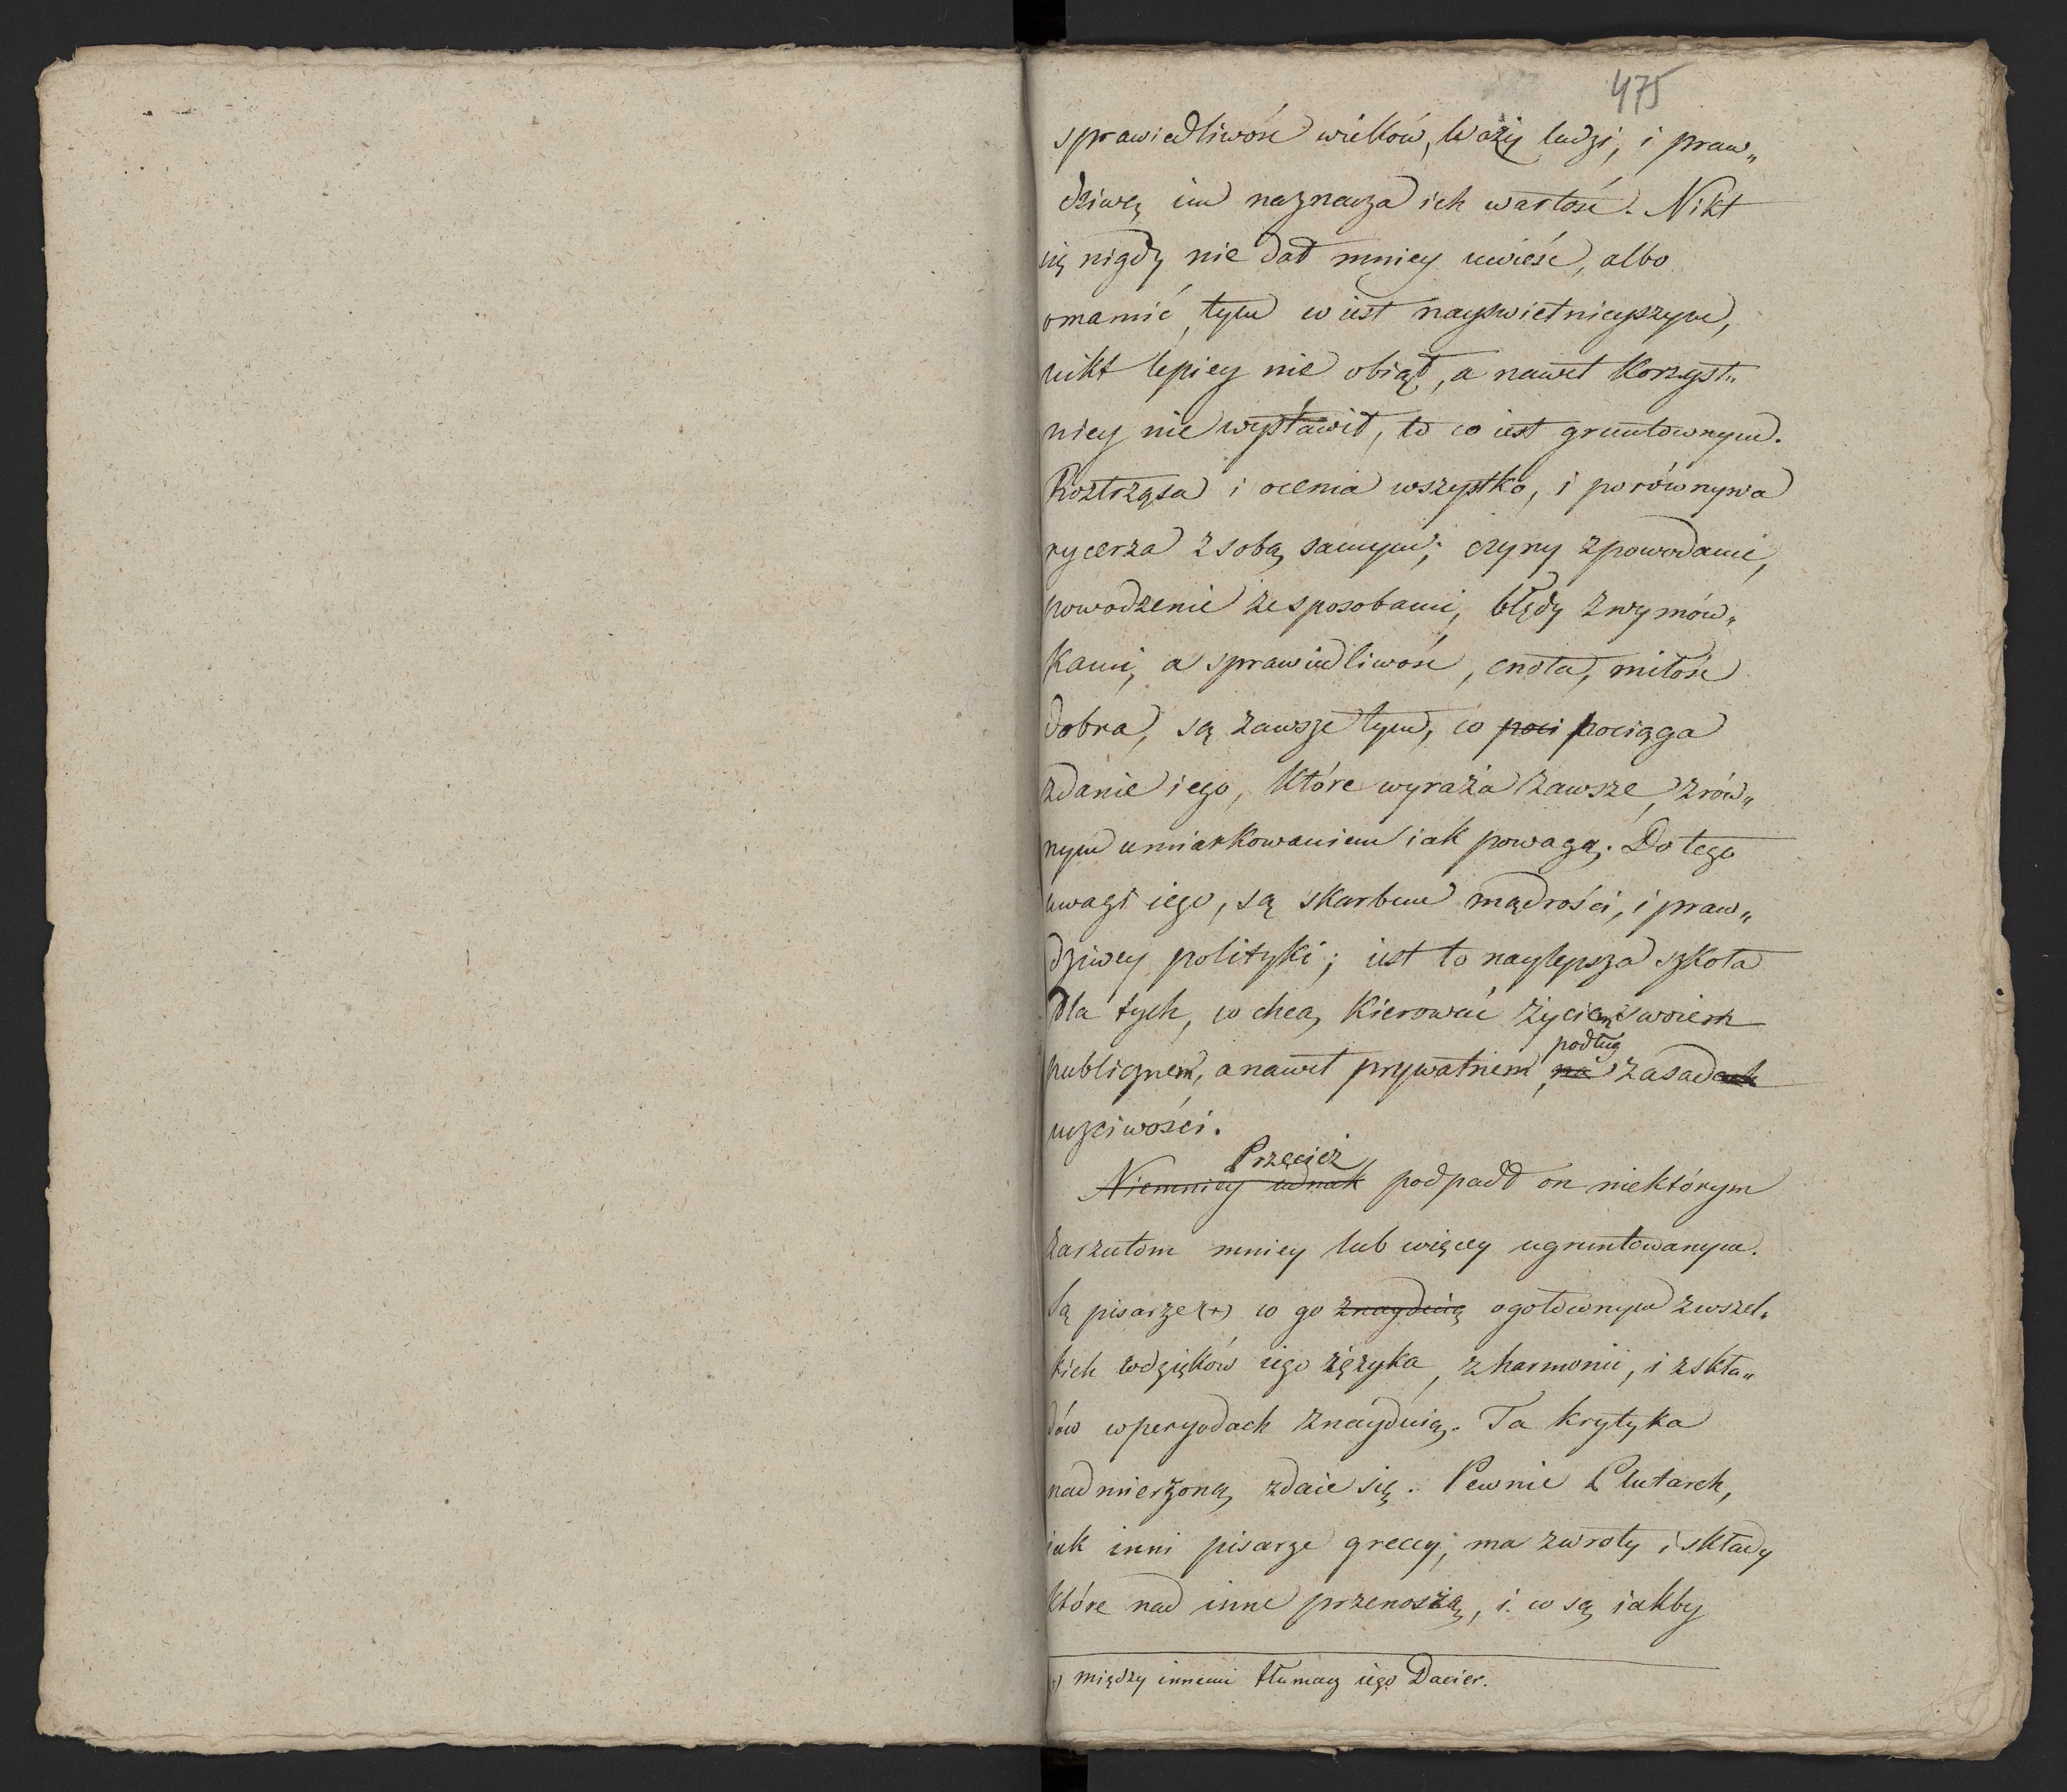 475
sprawiedliwość wieków, Waży ludzi, i praw„
dziwą im naznacza ich wartość. Nikt
się nigdy nie dał mniey uwieść, albo
omamić, tym co iest nayświetnieyszym,
nikt lepiey nie obiął, a nawet korzyst„
niey nie wystawił, to co iest gruntownym.
Roztrząsa i ocenia wszystko, i porównywa
rycerza z sobą samym; czyny z powodami,
powodzenie ze sposobami, błędy z wymów„
kami, a sprawiedliwość, cnota, miłość
dobra, są zawsze tym, co poci pociąga
zdanie iego, które wyraża zawsze, z rów„
nym umiarkowaniem iak powagą. Do tego
uwagi iego, są skarbem mądrości, i praw„
dziwey polityki; iest to naylepsza szkoła
dla tych, co chcą kierować życiem swoiem
podług
publicznem, a nawet prywatnem, na zasadach
uczciwości.
Przecież
Niemniey iednak podpadł on niektórym
zarzutom mniey lub więcey ugruntowanym.
Są pisarze (+) co go znayduią ogołoconym z wszel„
kich wdzięków iego ięzyka, z harmonii, i z skła„
dów w peryodach znayduią. Ta krytyka
nadmierzoną zdaie się. Pewnie Plutarch,
iak inni pisarze greccy, ma zwroty i składy
które nad inne przenoszą, i co są iakby
+) między innemi tłumacz iego Dacier.